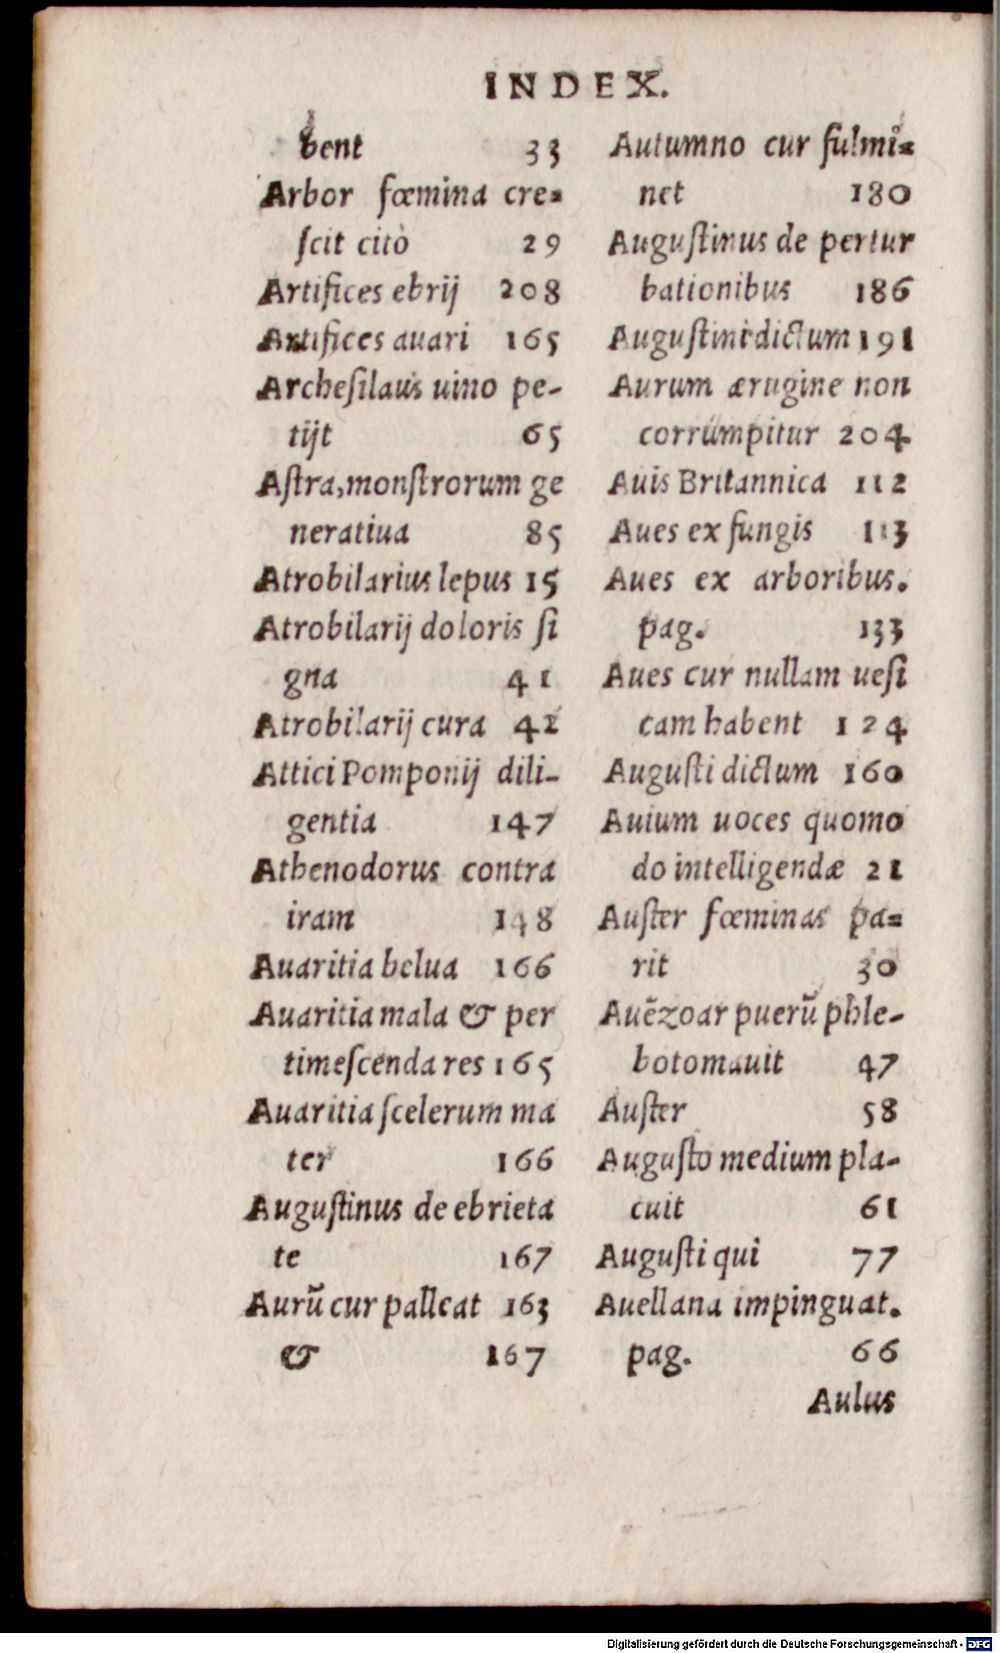 INDEX.
bent 33
Arbor fœmina cre=
ſcit citò 29
Artifices ebrij 208
Artifices auari 165
Archeſilaus uino pe-
tijt 65
Aſtra, monſtrorum ge
neratiua 85
Atrobilarius lepus 15
Atrobilarij doloris ſi
gna 41
Atrobilarij cura 42
Attici Pomponij dili-
gentia 147
Athenodorus contra
iram 148
Auaritia belua 166
Auaritia mala & per
timeſcenda res 165
Auaritia ſcelerum ma
ter 166
Auguſtinus de ebrieta
te 167
Aurũ cur palleat 163
& 167
Autumno cur fulmi=
net 180
Auguſtinus de pertur
bationibus 186
Auguſtini dictum 191
Aurum ærugine non
corrumpitur 204
Auis Britannica 112
Aues ex fungis 113
Aues ex arboribus.
pag. 133
Aues cur nullam ueſi
cam habent 124
Auguſti dictum 160
Auium uoces quomo
do intelligendæ 21
Auſter fœminas pa=
rit 30
Auẽzoar puerũ phle-
botomauit 47
Auſter 58
Auguſto medium pla-
cuit 61
Auguſti qui 77
Auellana impinguat.
pag. 66
Aulus
Digitalisierung gefördert durch die Deutsche Forschungsgemeinschaft - DFG